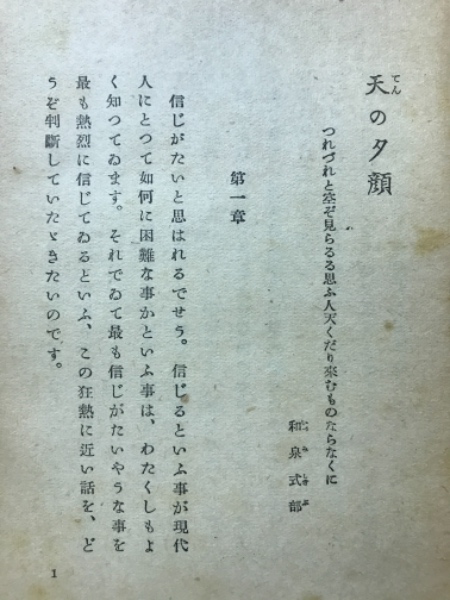 天の夕顔
つれづれと空ぞ見らるる思ふ人天くだり來むものならなくに
和泉式部
第一章
信じがたいと思はれるでせう。信じるといふ事が現代
人にとつて如何に困難な事かといふ事は、わたくしもよ
く知つてゐます。それでゐて最も信じがたいやうな事を
最も熱烈に信じてゐるといふ、この狂熱に近い話を、ど
うぞ判斷していたゞきたいのです。
1